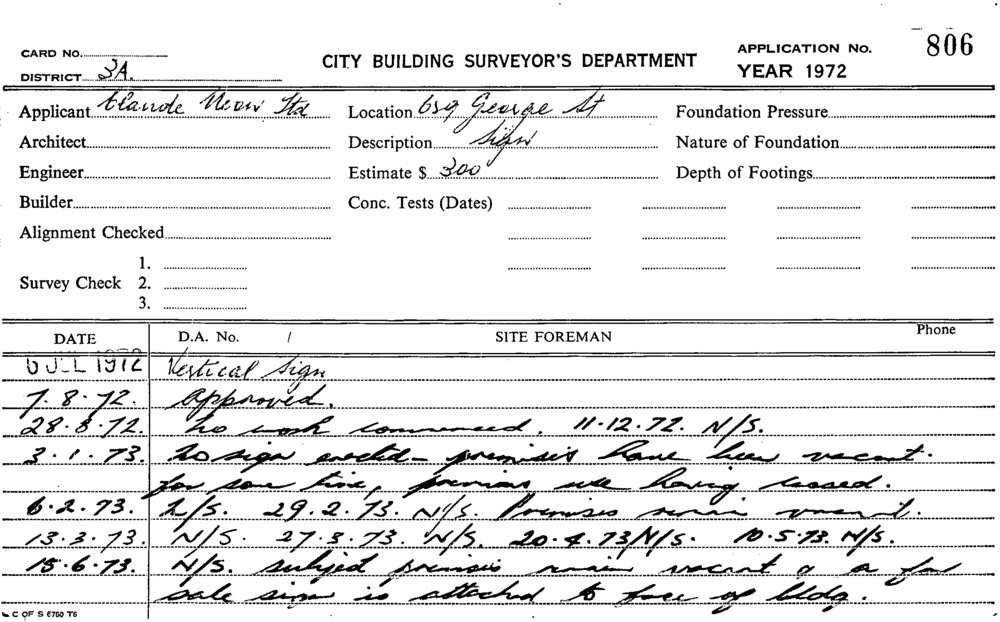 CARD No. CITY BUILDING SURVEYOR'S DEPARTMENT APPLICATION No. 806
DISTRICT 3A. YEAR 1972
Applicant Claude Neon Ltd Location 659 George St Foundation Pressure
Architect Description Sign Nature of Foundation
Engineer Estimate $ 300 Depth of Footings
Builder Conc. Tests (Dates)
Alignment Checked
1.
Survey Check 2.
3.
DATE D.A. No. / SITE FOREMAN Phone
JUL 1972 Vertical Sign
7.8.72. Approved.
28.8.72. No work commenced. 11.12.72. N/S.
3.1.73. No sign erected - premises have been vacant.
for some time, previous use having ceased.
6.2.73. N/S. 29.2.73. N/S. Premises remain vacant.
13.3.73. N/S. 27.3.73. N/S. 20.4.73 N/S. 10.5.73. N/S.
15.6.73. N/S. subject premises remain vacant & a for
sale sign is attached to face of bldg.
C OF S 6750 T6